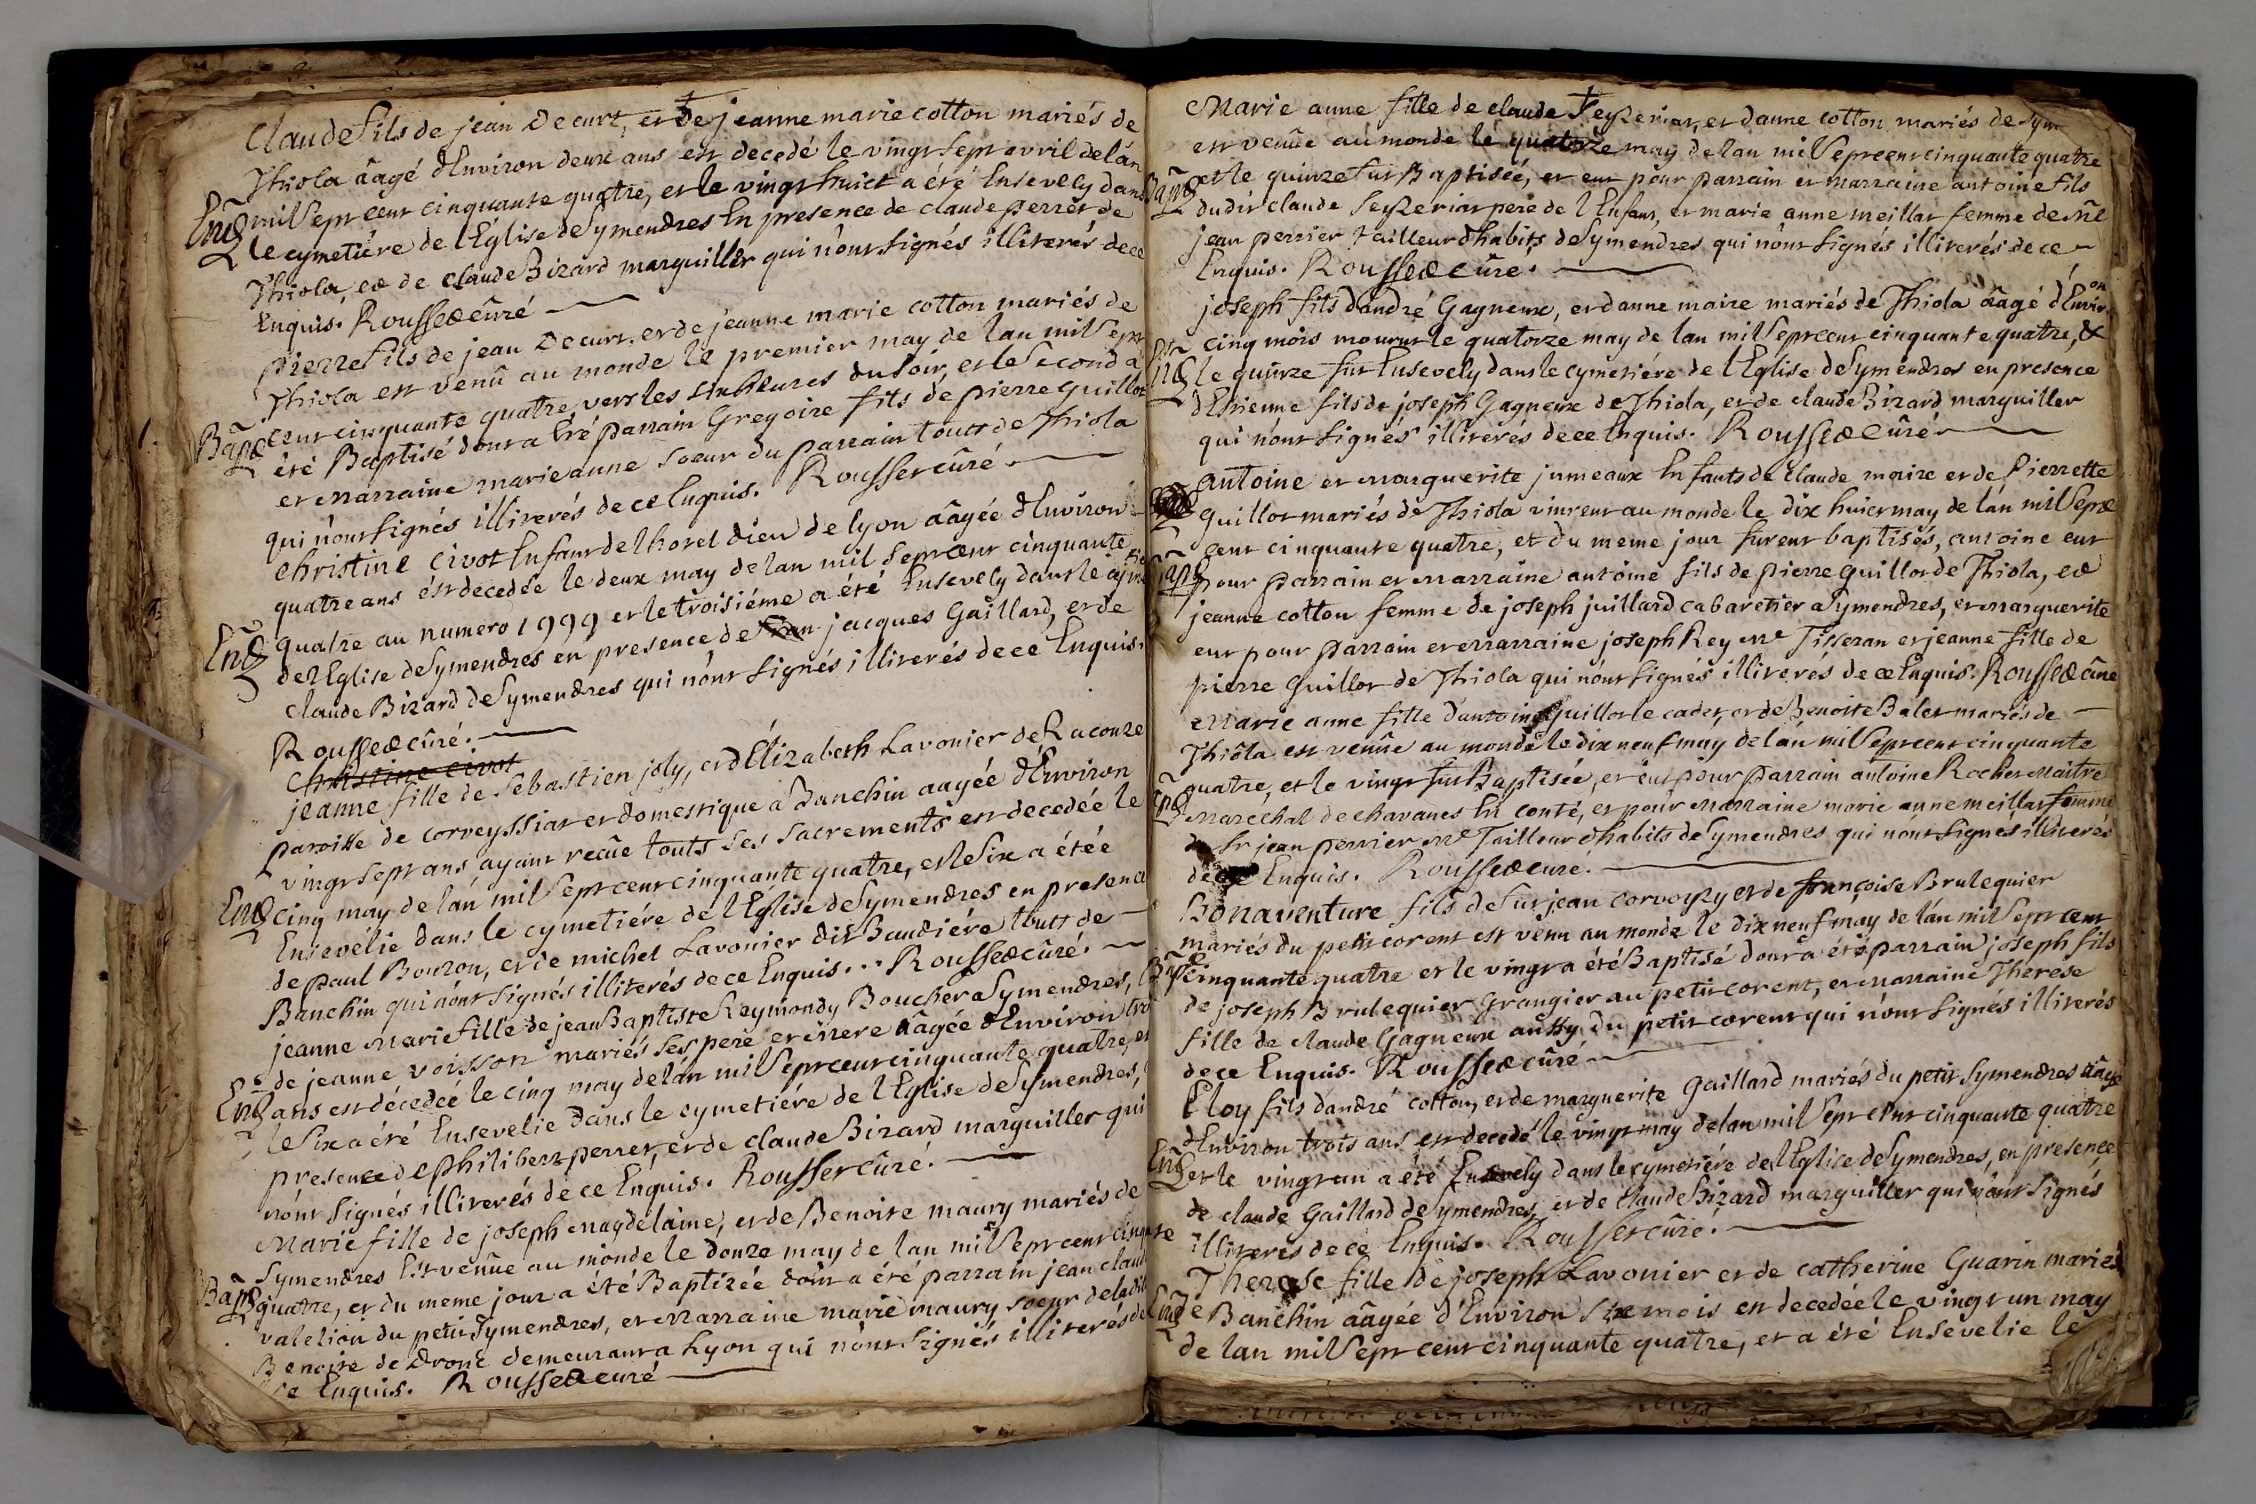 Claude fils de jean Decurt, et de jeanne marie cotton mariés de
Thiola âagé d'Environ deux ans est decedé le vingt sept avril de lán
Ens mil sept cent cinquante quatre, et le vingt huict a été Ensevely dans
le cymetiére de l'Église de Symendres En presence de claude perret de
Thiola, et de claude Bizard marguillier qui n'ont signés illiterés de ce
Enquis. Rousset cûré
pierre fils de jean Decurt, et de jeanne marie cotton mariés de
Thiola est venû au monde le premier may de lan mil sept
Bap cent cinquante quatre, vers les six heures du soir, et le second a
été Baptisé dont a été parrain Gregoire fils de pierre guillot
et marraine marie anne soeur du parrain touts de Thiola
qui n'ont signés illiterés de ce Enquis. Rousset cûré
christine civot Enfant de lhotel dieu de lyon âagée d'Environ
quatre ans ést decedée le deux may de lan mil sept cent cinquante
Ens quatre au numero 1999 et le troisiéme a été Ensevely dans le cyme
de l'Eglise de Symendres en presence de jacques Gaillard, et de
claude Bizard de Symendres qui n'ont signés illiterés de ce Enquis.
Rousset cûré.
Christine civot
jeanne fille de sebastien joly, et d'Élizabeth Lavonier de Racouze
paroisse de corveyssiat et domestique a Banchin aagée d'Environ
vingt sept ans ayant recûe touts ses sacrements est decedée le
Ens cinq may de lán mil sept cent cinquante quatre, et le six a étée
Ensevélie dans le cymetiére de l'Église de Symendres en presence
de paul Bouzon, et de michel Lavonier dit Baudiére touts de
Banchin qui n'ont signés illiterés de ce Enquis... Rousset cûré.
jeanne Marie fille de jean Baptiste Reymondy Boucher a Symendres,
de jeanne voisson mariés ses pere et mere âagée d'Environ
Ens ans est décedeé le cinq may de lán mil sept cent cinquante quatre, et
le six a été Ensevelie dans le cymetiére de l'Eglise de Symendres,
presence de philibert perret, et de claude Bizard marguiller qui
n'ont signés illiterés de ce Enquis. Rousset cûré.
Marie fille de joseph magdelaine, et de Benoite maury mariés de
Symendres Est venûe au monde le douze may de lan mil sept cent cinqte
Bap quatre, et du meme jour a été Baptizée dont a été parrain jean claude
valetion du petit Symendres, et marraine marie maury soeur de ladite
Benoite de Drone demeurant a Lyon qui n'ont signés illiterés de
ce Enquis. Rousset curé
Marie anne fille de claude Seyzeriat, et d'anne cotton mariés de Sym
est venûe au monde le quatorze may de lan mil sept cent cinquante quatre
Bap et le quinze fut Baptisée, et eut pour parrain et marraine antoine fils
dudit claude Seyzeriat pere de l'Enfant, et marie anne meillat femme de me
jean perrier tailleur d'habits de Symendres qui n'ont signés illiterés de ce
Enquis. Rousset cûré.
joseph fils d'andré Gagneux, et d'anne maire mariés de Thiola âagé d'Environ
cinq mois mourut le quatorze may de lan mil sept cent cinquante quatre, &
Ens le quinze fut Ensevely dans le cymetiére de l'Eglise de Symendres en presence
d'Etienne fils de joseph Gagneux de Thiola, et de claude Bizard marguiller
qui n'ont signés illiterés de ce Enquis. Rousset Cûré
antoine et marguerite jumeaux Enfants de Claude maire et de Pierrette
Guillot mariés de Thiola vinrent au monde le dix huict may de lán mil sept
cent cinquante quatre, et du meme jour furent baptisés, antoine eut
Bap pour parrain et marraine antoine fils de pierre guillot de Thiola, et
jeanne cotton femme de joseph juillard cabaretier a Symendres, et marguerite
eut pour parrain et marraine joseph Rey me Tisseran et jeanne fille de
pierre Guillot de Thiola qui n'ont signés illiterés de ce Enquis. Rousset cûré
Marie anne fille d'antoine Guillot le cadet, et de Benoite Balet mariés de
Thiôla est venûe au monde le dix neuf may de lán mil sept cent cinquante
quatre, et le vingt fut Baptisée, et eut pour parrain antoine Rochet maitre
Bap marechal de chavanes En conté, et pour marraine marie anne meillat femme
de Sr jean perrier me Tailleur d'habits de Symendres qui n'ont signés illiterés
de ce Enquis. Rousset curé.
Bonaventure fils de Sur jean corvoyzy et de françoise Brulequier
mariés du petit corent est vénu au monde le dix neuf may de lán mil sept cent
Bap cinquante quatre et le vingt a été Baptisé dont a été parrain joseph fils
de joseph Brulequier Grangier au petit corent, et marraine Therese
fille de claude Gagneux aussy du petit corent qui n'ont signés illiterés
de ce Enquis. Rousset cûré
Eloy fils d'andré cotton, et de marguerite Gaillard mariés du petit Symendres âagé
d'Environ trois ans est decedé le vingt may de lan mil sept cent cinquante quatre
Ens et le vingt un a été Ensevely dans le cymetiére de l'Eglise de Symendres, en presence
de claude Gaillard de Symendres, et de claude Bizard marguiller qui n'ont signés
illiterés de ce Enquis. Rousset cûré.
Therese fille de joseph Lavonier et de catherine Guarin mariés
Ens de Banchin âagée d'Environ six mois est decedée le vingt un may
de lan mil sept cent cinquante quatre, et a été Ensevelie le